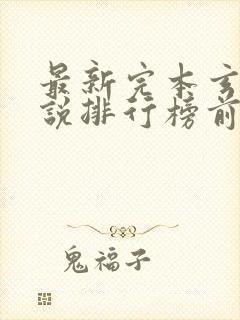 最新完本玄
說排行榜前
鬼福子